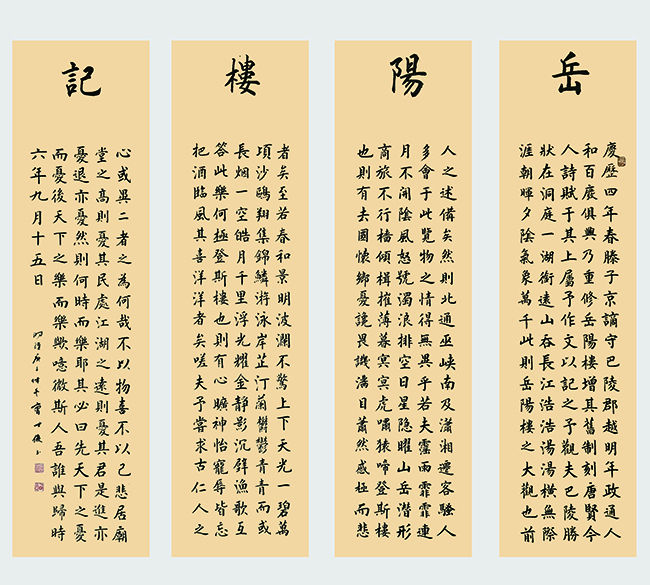 岳
慶歷四年春滕子京謫守巴陵郡越明年政通人
和百廢俱興乃重修岳陽樓增其舊制刻唐賢今
人詩賦于其上屬予作文以記之予觀夫巴陵勝
狀在洞庭一湖銜遠山吞長江浩浩湯湯橫無際
涯朝暉夕陰氣象萬千此則岳陽樓之大觀也前
陽
人之述備矣然則北通巫峽南及瀟湘遷客騷人
多會于此覽物之情得無異乎若夫霪雨霏霏連
月不開陰風怒號濁浪排空日星隱曜山岳潛形
商旅不行檣傾楫摧薄暮冥冥虎嘯猿啼登斯樓
也則有去國懷鄉憂讒畏譏滿目蕭然感極而悲
樓
者矣至若春和景明波瀾不驚上下天光一碧萬
頃沙鷗翔集錦鱗游泳岸芷汀蘭鬱鬱青青而或
長烟一空皓月千里浮光耀金靜影沉璧漁歌互
答此樂何極登斯樓也則有心曠神怡寵辱皆忘
把酒臨風其喜洋洋者矣嗟夫予嘗求古仁人之
記
心或異二者之為何哉不以物喜不以己悲居廟
堂之高則憂其民處江湖之遠則憂其君是進亦
憂退亦憂然則何時而樂耶其必曰先天下之憂
而憂後天下之樂而樂歟噫微斯人吾誰與歸時
六年九月十五日